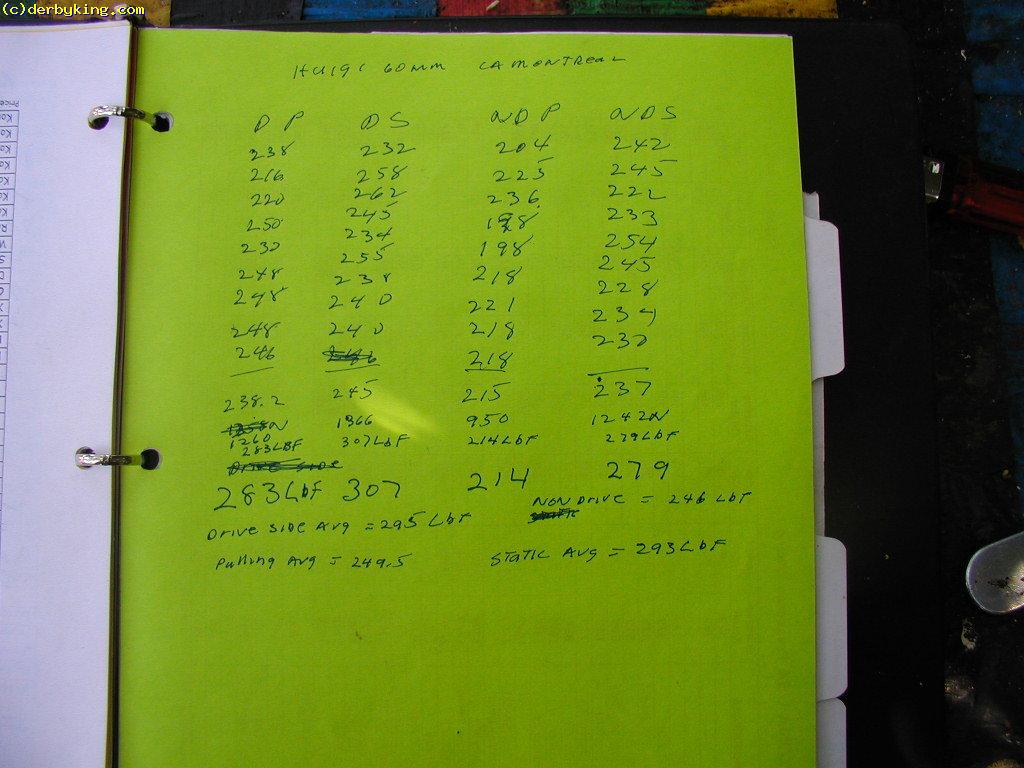 (c)derbyking.com
HU191 60mm LA MONTREAL
DP DS NDP NDS
238 232 204 242
216 258 225 245
220 262 236 222
250 245 198 233
230 234 198 254
248 255 218 245
248 238 221 228
248 240 218 234
246 240 218 230
238.2 245 215 237
1260 1366 950 1242N
283LBF 307LbF 214LbF 279LbF
283LbF 307 214 279
Drive side Avg = 295 LbF NON Drive = 246 LbF
Pulling Avg = 249.5 STATIC Avg = 293LbF